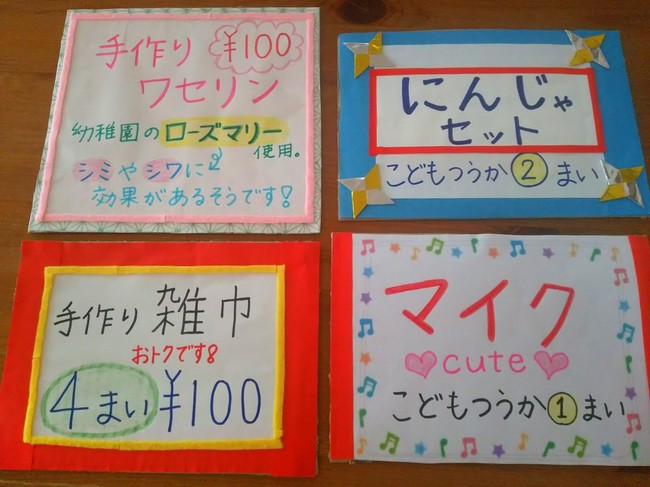 手作り ¥100
ワセリン
幼稚園のローズマリー
使用。
シミやシワに
効果があるそうです!
にんじゃ
セット
こどもつうか2まい
手作り雑巾
おトクです!
4まい¥100
マイク
cute
こどもつうか1まい